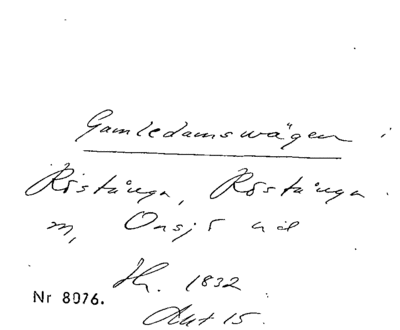 Gamledamswägen i
Röstånga, Röstånga
m, Onsjö hd
Hr. 1832
Nr 8076.
Akt 15.